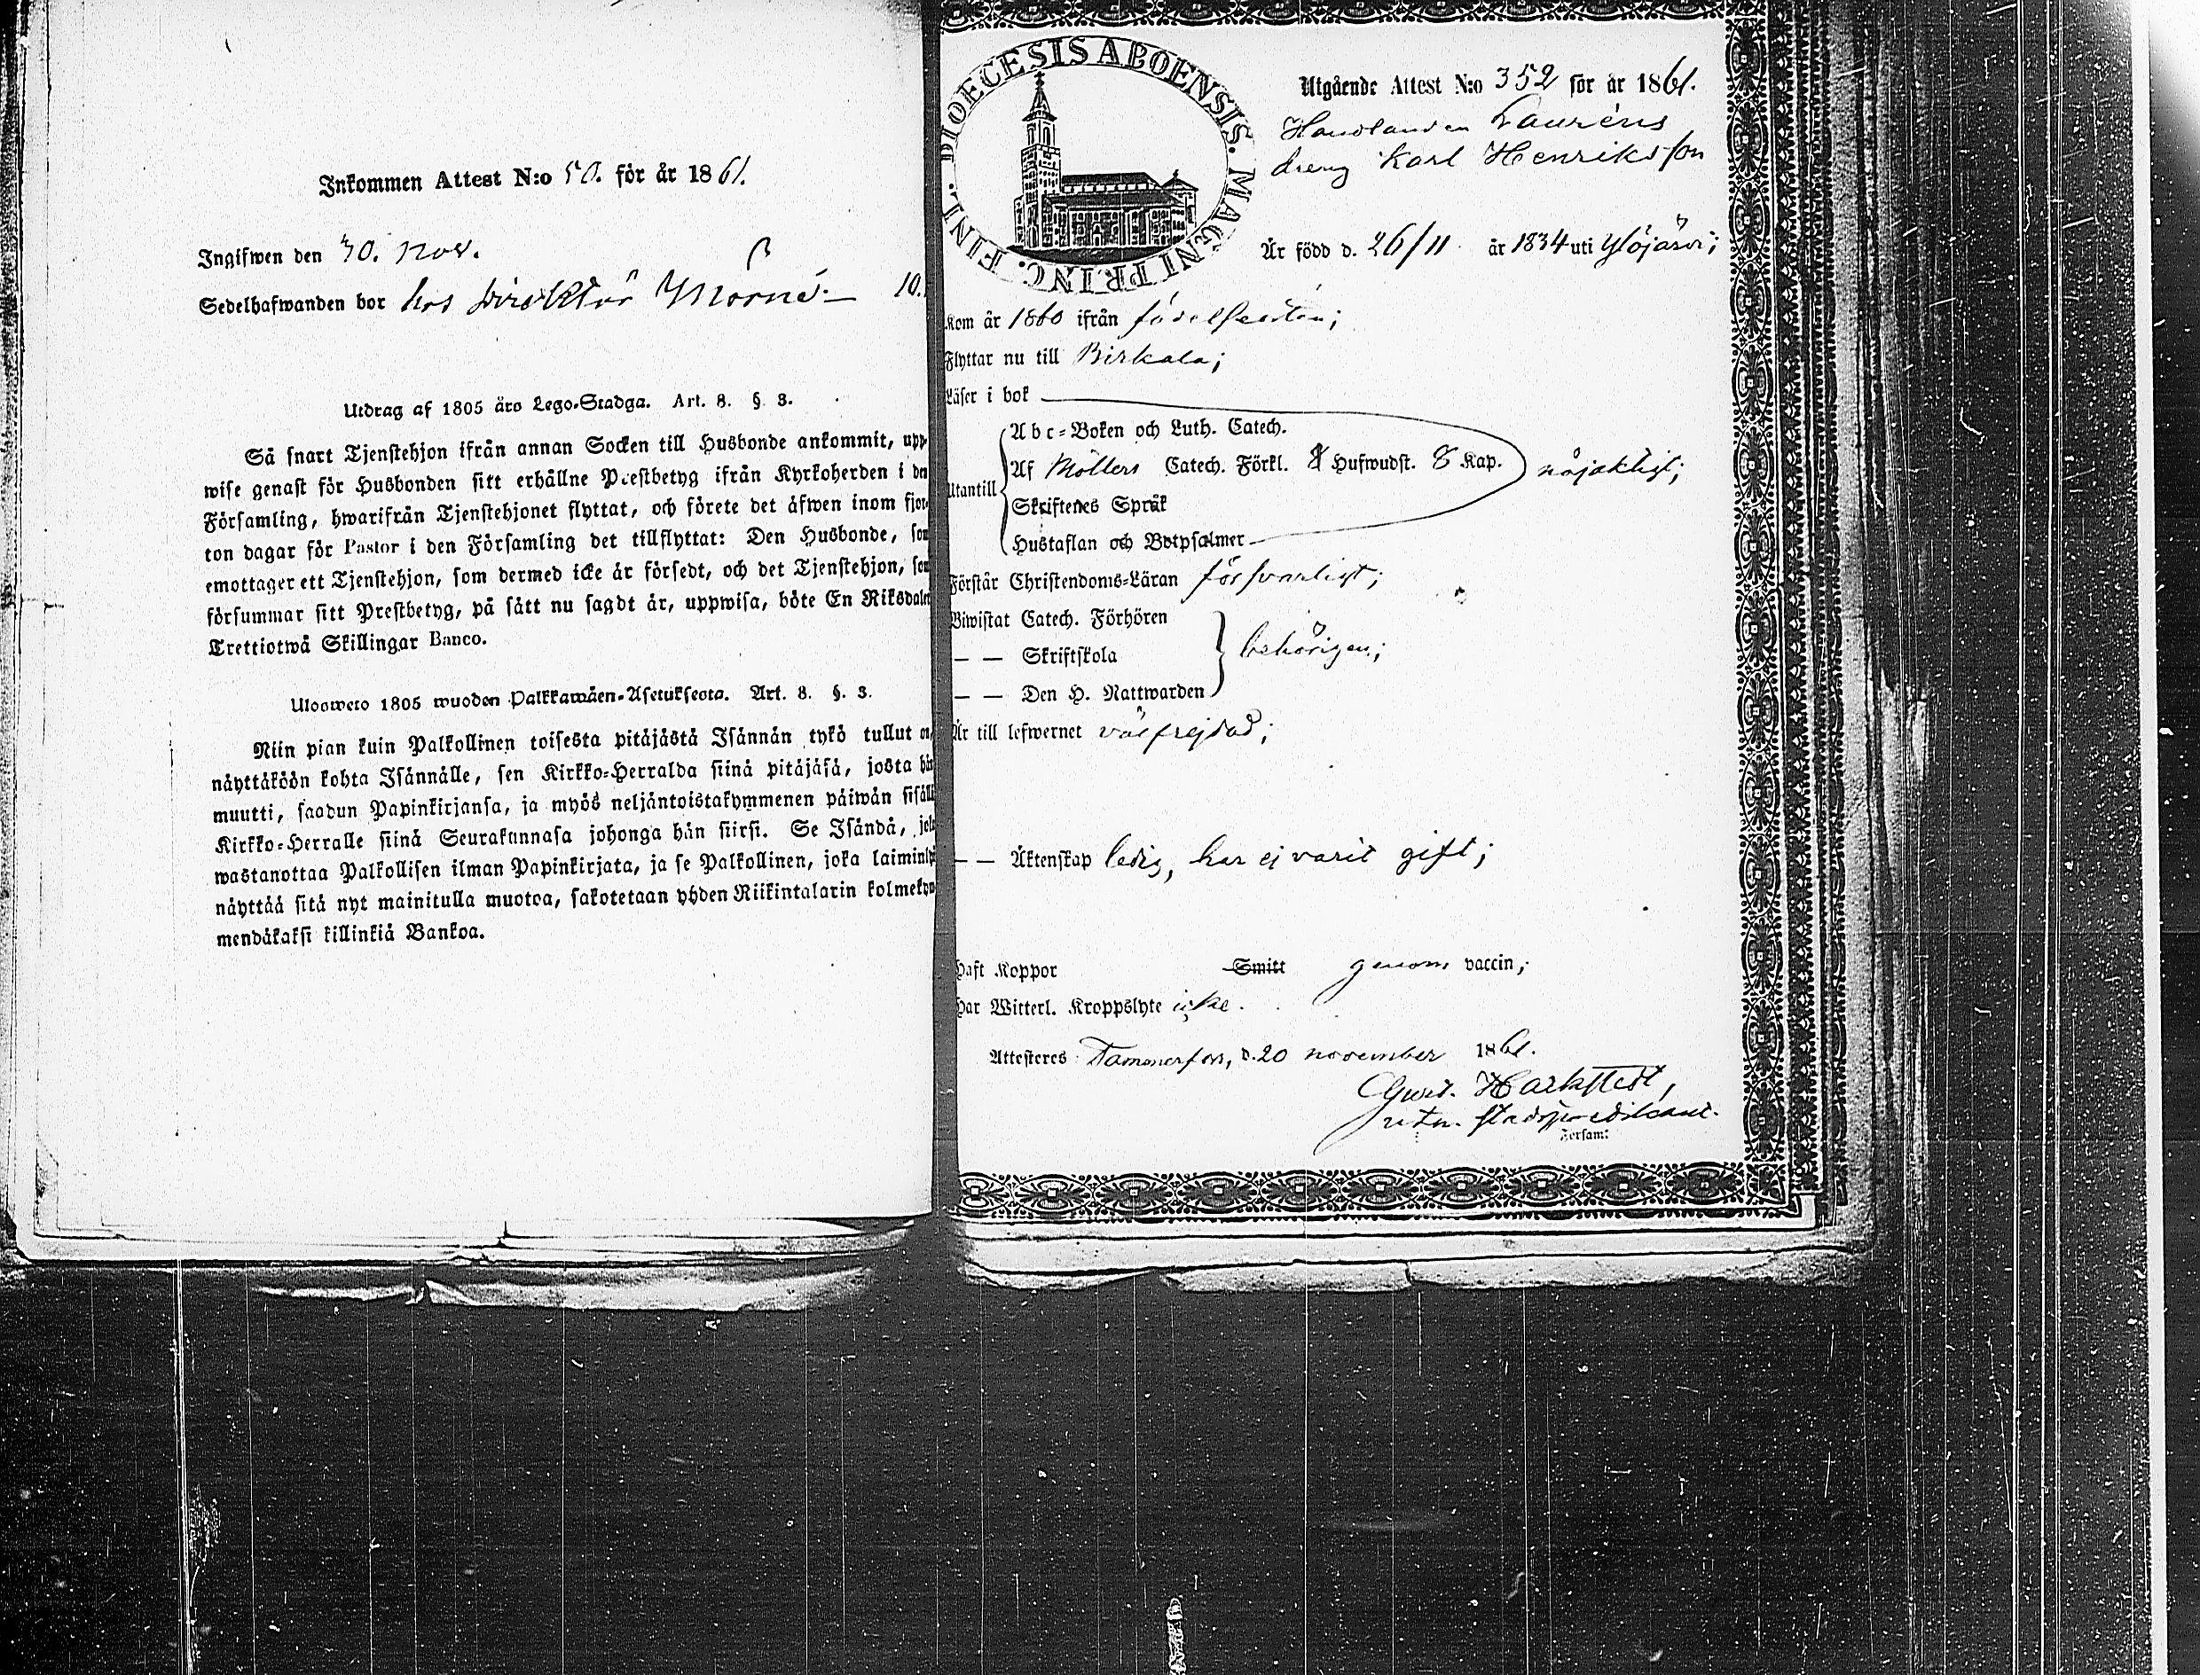 Inkommen Attest N:o 50. för år 1861.
Ingifwen den 30. nov.
Sedelhafwanden bor hos Direktör Mörne.— 10.
Utdrag af 1805 års Lego-Stadga. Art. 8. §. 3.
Så snart Tjenstehjon ifrån annan Socken till Husbonde ankommit, upp-
wise genast för Husbonden sitt erhållne Prestbetyg ifrån Kyrkoherden i den
Församling, hwarifrån Tjenstehjonet flyttat, och förete det äfwen inom fjor-
ton dagar för Pastor i den Församling det tillflyttat: Den Husbonde, som
emottager ett Tjenstehjon, som dermed icke är försedt, och det Tjenstehjon, som
försummar sitt Prestbetyg, på sätt nu sagdt är, uppwisa, böte En Riksdaler
Trettiotwå Skillingar Banco.
Ulosweto 1805 wuoden Palkkawäen-Asetuksesta. Art. 8. §. 3.
Niin pian kuin Palkollinen toisesta pitäjästä Isännän tykö tullut on,
näyttäköön kohta Isännälle, sen Kirkko-Herralda siinä pitäjäsä, josta hän
muutti, saadun Papinkirjansa, ja myös neljäntoistakymmenen päiwän sisällä
Kirkko-Herralle siinä Seurakunnasa johonga hän siirsi. Se Isändä, joka
wastanottaa Palkollisen ilman Papinkirjata, ja se Palkollinen, joka laiminlyö
näyttää sitä nyt mainitulla muotoa, sakotetaan yhden Riikintalarin kolmekym-
mendäkaksi killinkiä Bankoa.
FINL. DIOECESIS ABOENSIS. MAGNI PRINC.
Utgående Attest N:o 352 för år 1861.
Handlanden Lauréns
dreng Karl Henriksson
Är född d. 26/11 år 1834 uti Ylöjärvi;
Kom år 1860 ifrån födelseorten;
Flyttar nu till Birkala;
Läser i bok
Utantill
Abc-Boken och Luth. Catech.
Af Möllers Catech. Förkl. Hufwudst. 8 Kap. nöjaktligt;
Skriftenes Språk
Hustaflan och Botpsalmer
Förstår Christendoms-Läran försvarligt;
Biwistat Catech. Förhören
— — Skriftskola behörigen;
— — Den H. Nattwarden
Är till lefwernet välfrejdad;
— — Äktenskap ledig, har ej varit gift;
Haft Koppor Smitt genom vaccin;
Har Witterl. Kroppslyte icke.
Attesteres Tammerfors, d. 20 november 1861.
Gust. Harkstedt,
stadspredikant.
Försam: